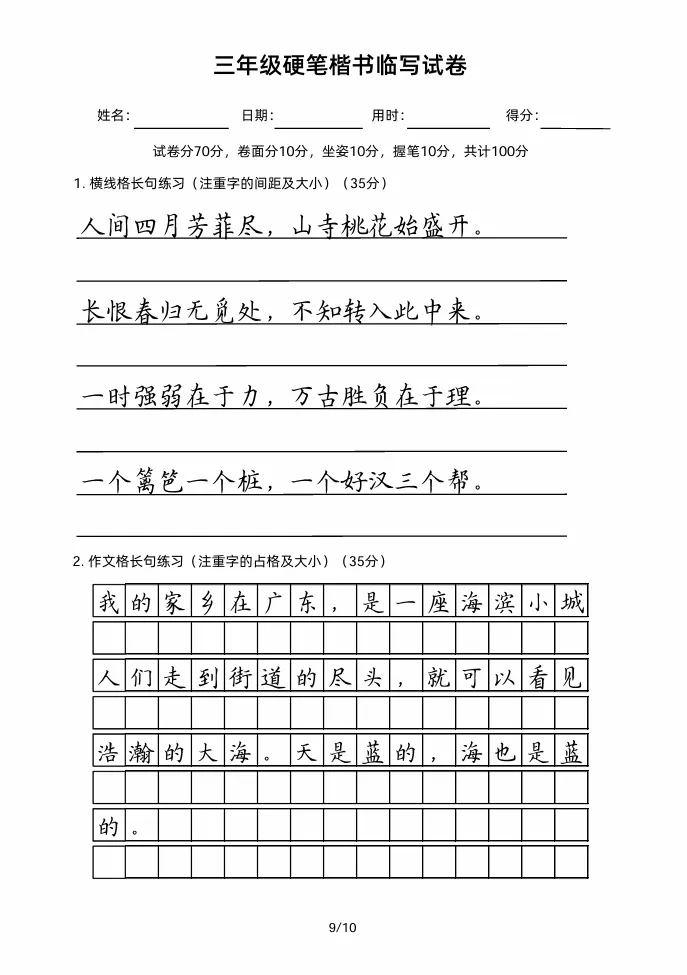 三年级硬笔楷书临写试卷
姓名： 日期： 用时： 得分：
试卷分70分，卷面分10分，坐姿10分，握笔10分，共计100分
1. 横线格长句练习（注重字的间距及大小）（35分）
人间四月芳菲尽，山寺桃花始盛开。
长恨春归无觅处，不知转入此中来。
一时强弱在于力，万古胜负在于理。
一个篱笆一个桩，一个好汉三个帮。
2. 作文格长句练习（注重字的占格及大小）（35分）
我的家乡在广东，是一座海滨小城
人们走到街道的尽头，就可以看见
浩瀚的大海。天是蓝的，海也是蓝
的。
9/10